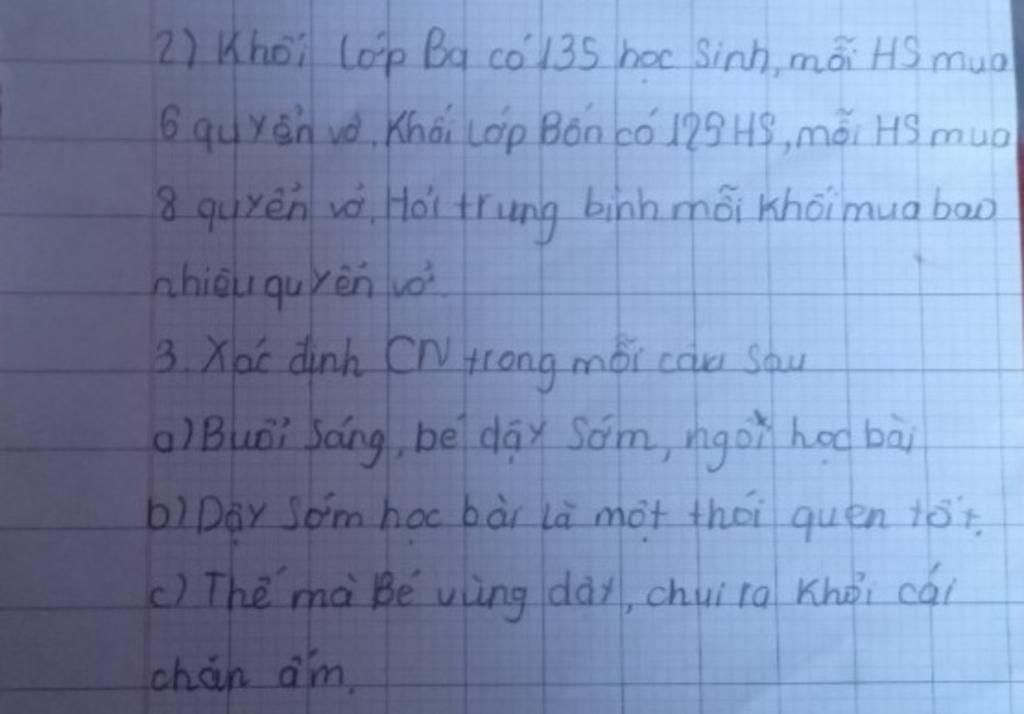 2) Khối lớp Ba có 135 học sinh, mỗi HS mua
6 quyển vở. Khối Lớp Bốn có 129 HS, mỗi HS mua
8 quyển vở. Hỏi trung bình mỗi khối mua bao
nhiêu quyển vở.
3. Xác định CN trong mỗi câu sau
a) Buổi sáng, bé dậy sớm, ngồi học bài
b) Dậy sớm học bài là một thói quen tốt.
c) Thế mà Bé vùng dậy, chui ra khỏi cái
chăn ấm.